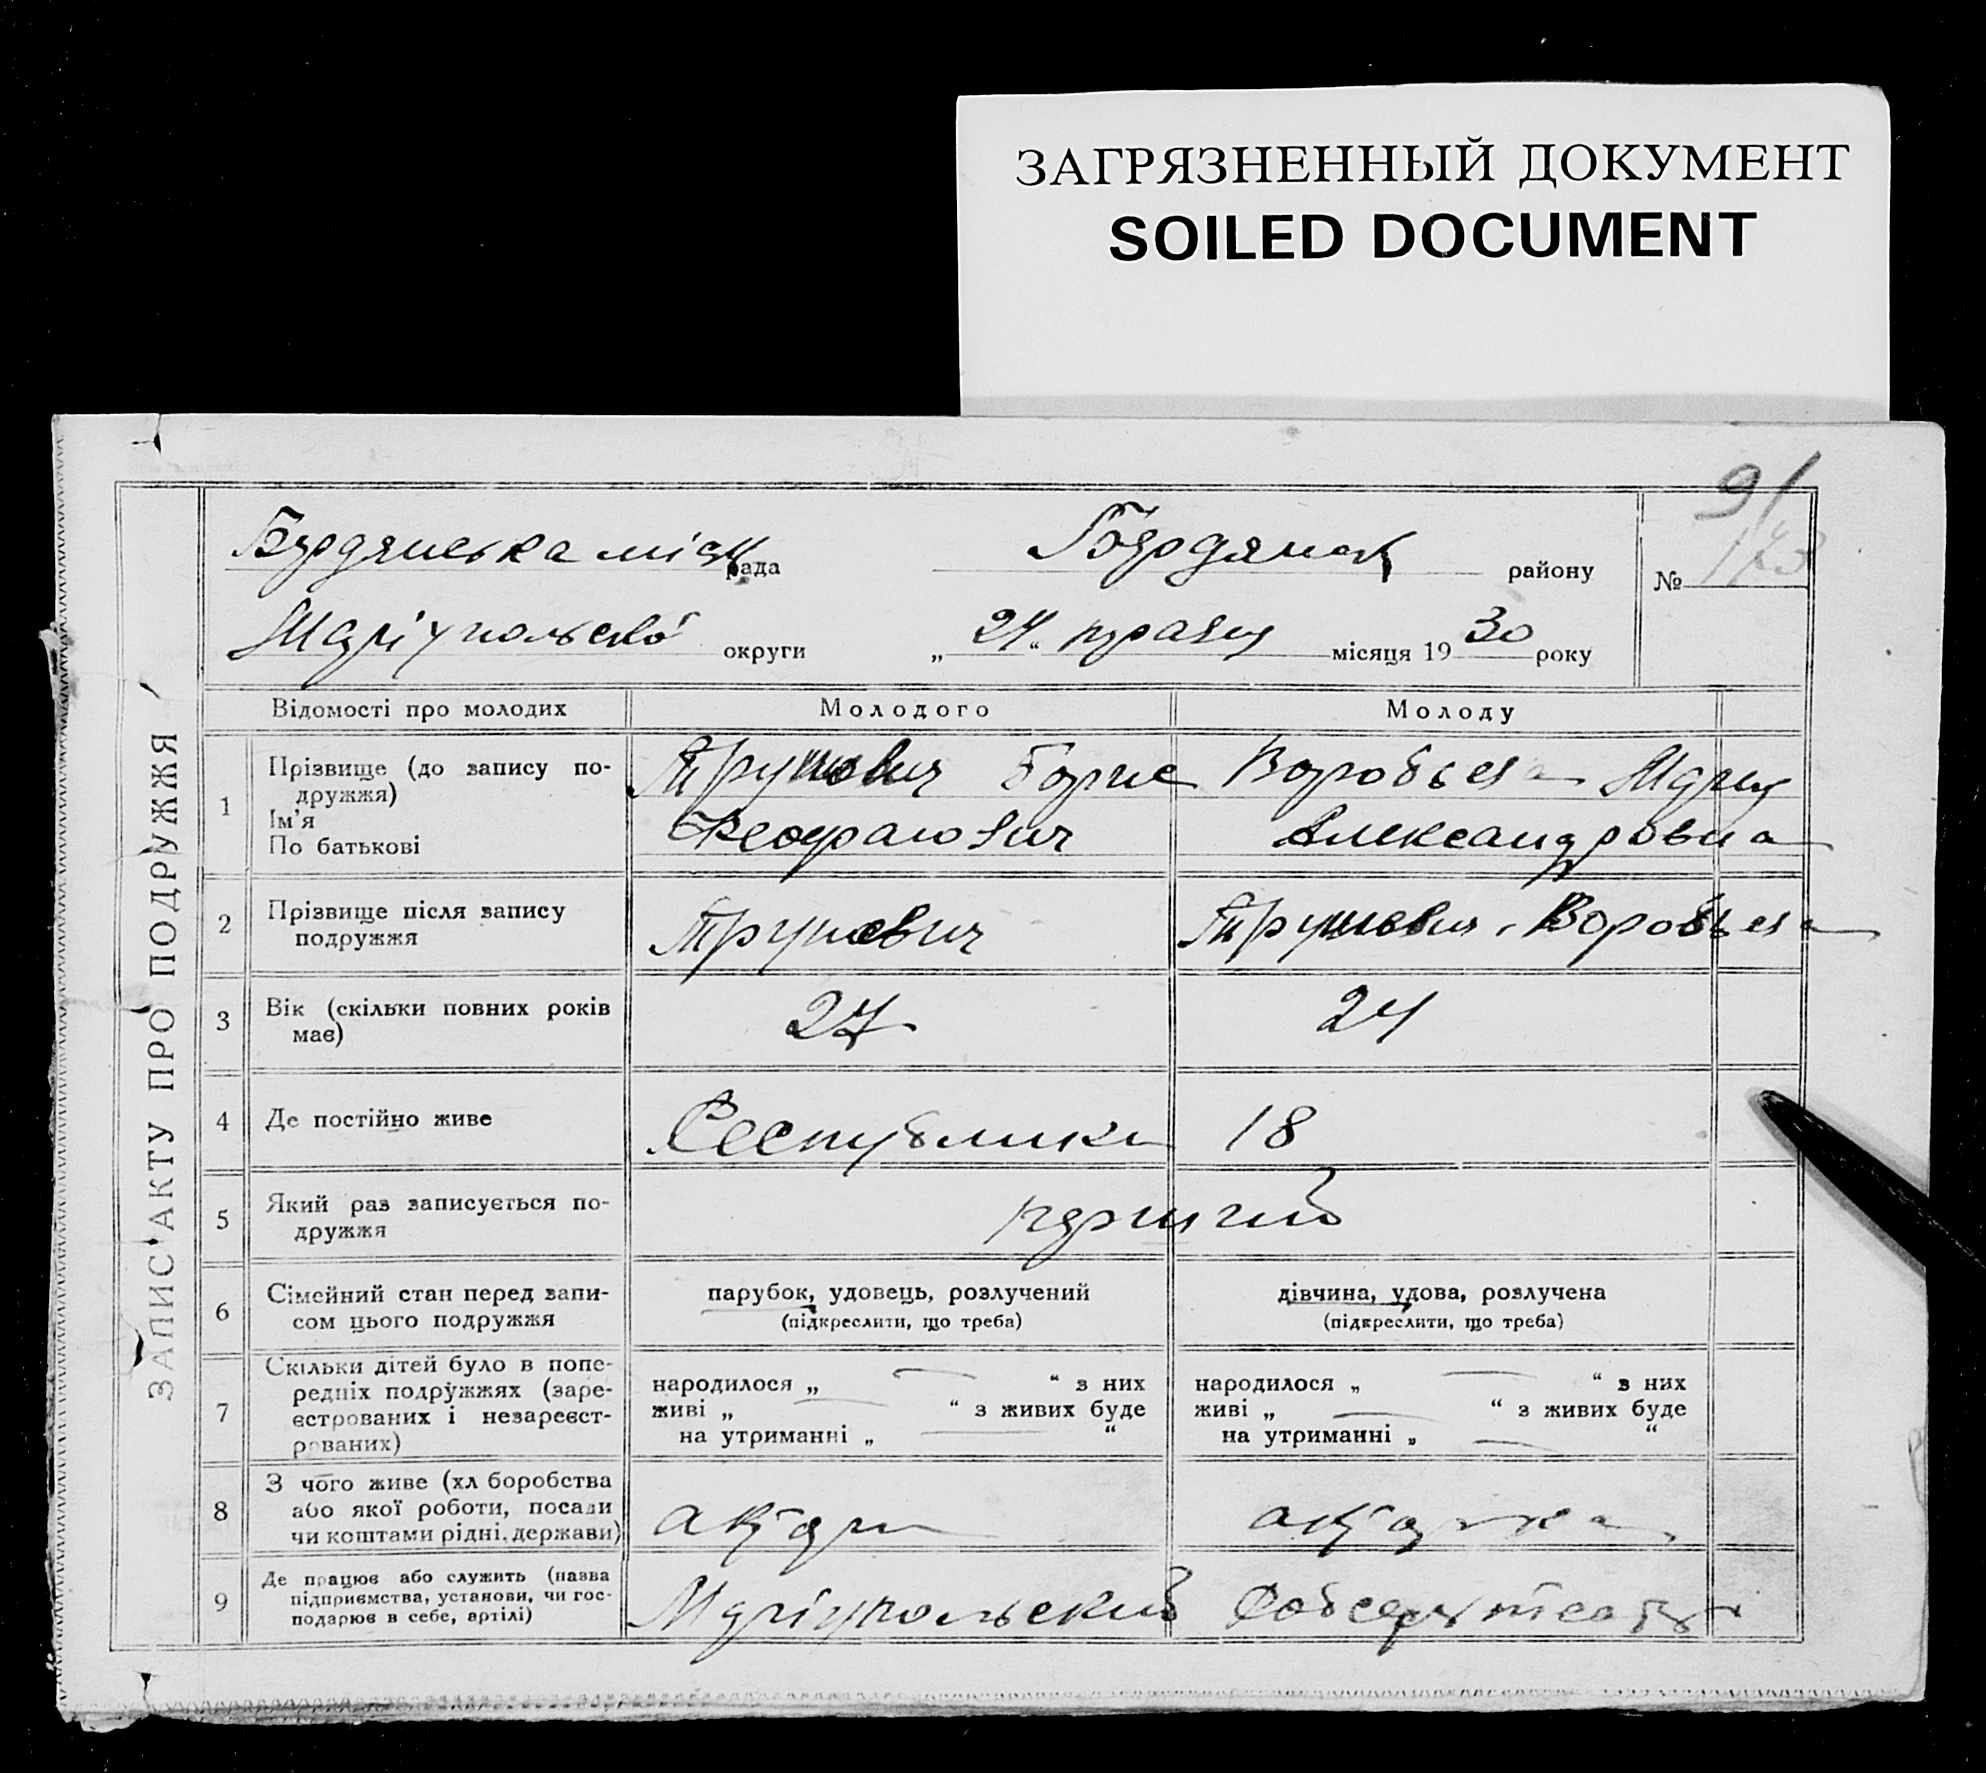 ЗАГРЯЗНЕННЫЙ ДОКУМЕНТ
SOILED DOCUMENT
91
173
Бердянська міськ рада Бердянськ району №
Маріупольської округи „24“ травня місяця 1930 року
ЗАПИС АКТУ ПРО ПОДРУЖЖЯ
Відомості про молодих Молодого Молоду
1 Прізвище (до запису по-
дружжя)
Ім'я
По батькові
Трунович Борис
Воробьева Мария
Александровна
2 Прізвище після запису
подружжя
Трунович
Трунович-Воробьева
3 Вік (скільки повних років
має)
27
24
4 Де постійно живе
Республики 18
5 Який раз записується по-
дружжя
перший
6 Сімейний стан перед запи-
сом цього подружжя
парубок, удовець, розлучений
(підкреслити, що треба)
дівчина, удова, розлучена
(підкреслити, що треба)
7 Скільки дітей було в попе-
редніх подружжях (заре-
єстрованих і незареєст-
рованих)
народилося „ — “ з них
живі „ — “ з живих буде
на утриманні „ — “
народилося „ — “ з них
живі „ — “ з живих буде
на утриманні „ — “
8 З чого живе (хл боробства
або якої роботи, посади
чи коштами рідні, держави)
актор
акторка
9 Де працює або служить (назва
підприємства, установи, чи гос-
подарює в себе, артілі)
Маріупольский театр